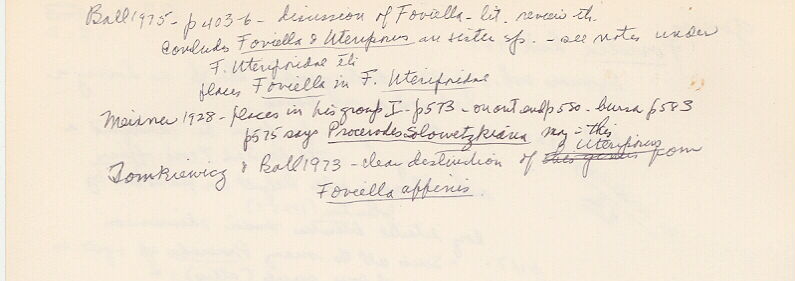 Ball 1975 - p 403-6 - discussion of Foviella - lit. review th.
Concludes Foviella & Uteriporus are sister sp. - see notes under
F. Uteriporidae
places Foviella in F. Uteriporidae
Meixner 1928 - places in his group I - p573 - on out end p580 - bursa p583
p575 says Procerodes solowetzkiana may = this
Tomkiewicz & Ball 1973 - clear distinction of Uteriporus from
Foviella affinis.